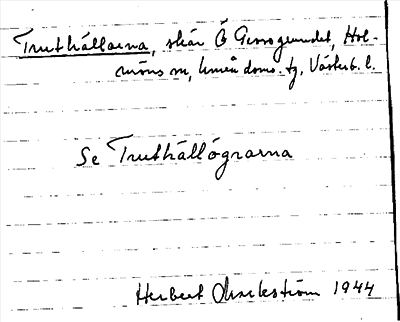 Truthällarna, skär Ö Grossgrundet, Hol-
möns sn, Umeå doms. tg, Västerb. l.
Se Truthällögrarna
Herbert Markström 1944